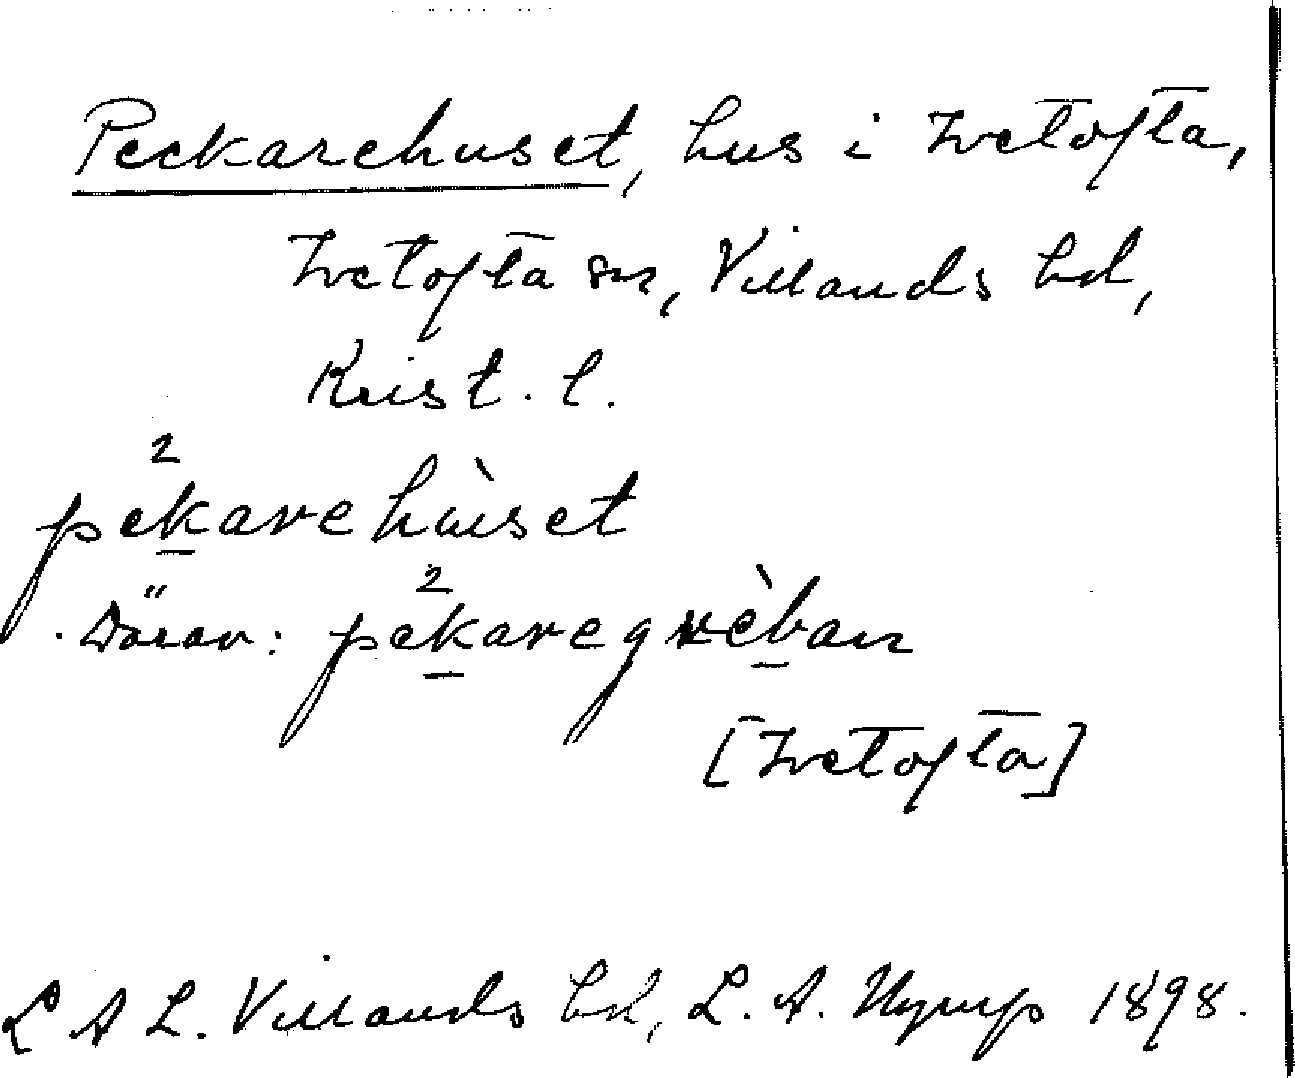 Peckarehuset, hus i Ivetofta,
Ivetofta sn, Villands hd,
Krist. l.
2
pekarehùset
2
Därav: pekaregrèban
[Ivetofta]
L A L. Villands hd, L. A. Nyrup 1898.